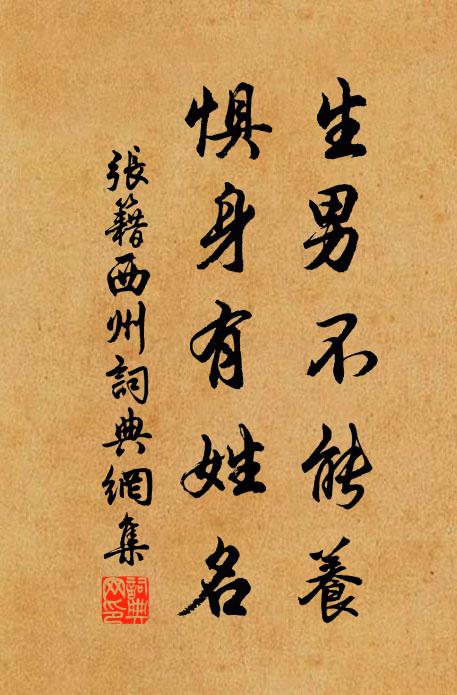 生男不能養
懼身有姓名
張籍西州詞典網集
詞典网印